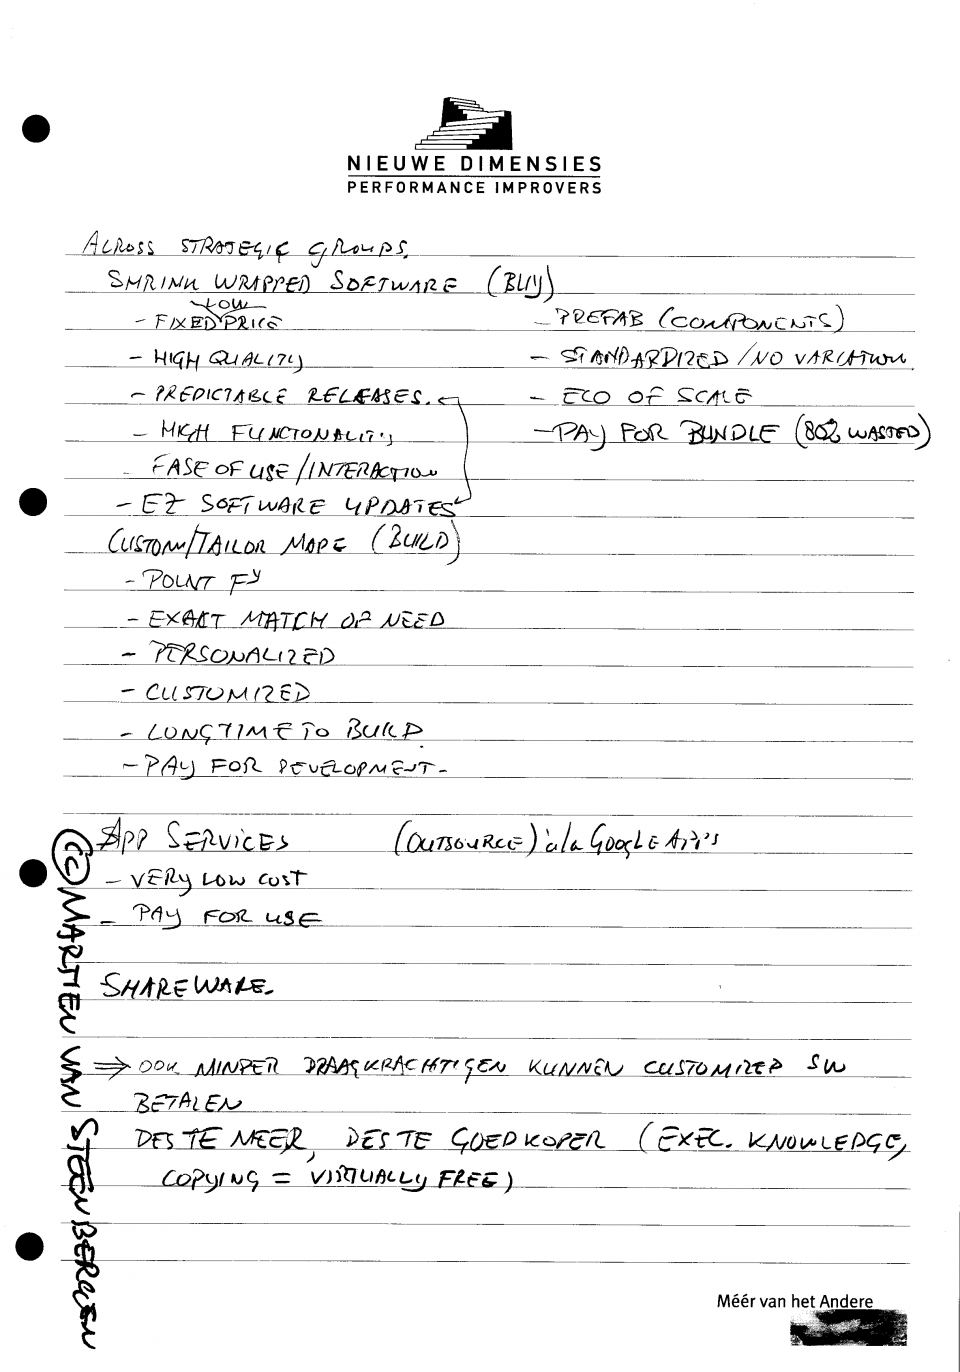 NIEUWE DIMENSIES
PERFORMANCE IMPROVERS
ACROSS STRATEGIC GROUPS.
SHRINK WRAPPED SOFTWARE (BUY)
LOW
- FIXED PRICE
- HIGH QUALITY
- PREDICTABLE RELEASES.
- HIGH FUNCTONALITY
- EASE OF USE/INTERACTION
- EZ SOFTWARE UPDATES
- PREFAB (COMPONENTS)
- STANDARDIZED/NO VARIATION
- ECO OF SCALE
- PAY FOR BUNDLE (80% WASTED)
CUSTOM/TAILOR MADE (BUILD)
- POINT FY
- EXACT MATCH OF NEED
- PERSONALIZED
- CUSTOMIZED
- LONG TIME TO BUILD
- PAY FOR DEVELOPMENT-
APP SERVICES (OUTSOURCE) à la GOOGLE API'S
- VERY LOW COST
- PAY FOR USE
SHAREWARE.
⇒ OOK MINDER DRAAGKRACHTIGEN KUNNEN CUSTOMIZED SW
BETALEN
DES TE MEER, DES TE GOEDKOPER (EXEC. KNOWLEDGE,
COPYING = VIRTUALLY FREE)
(CC) MARTIEN VAN STEENBERGEN
Méér van het Andere